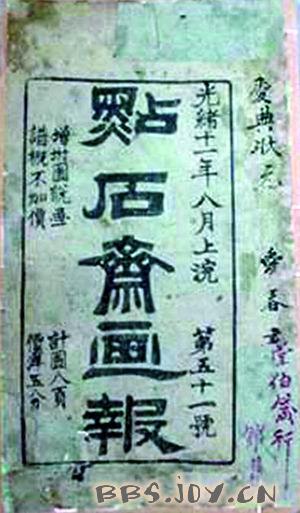 慶典狀元
光緒十一年八月上浣 第五十一號
點石齋画報
增附圖說畫
譜概不加價
計圖八頁
價洋五分
BBS.JOY.CN